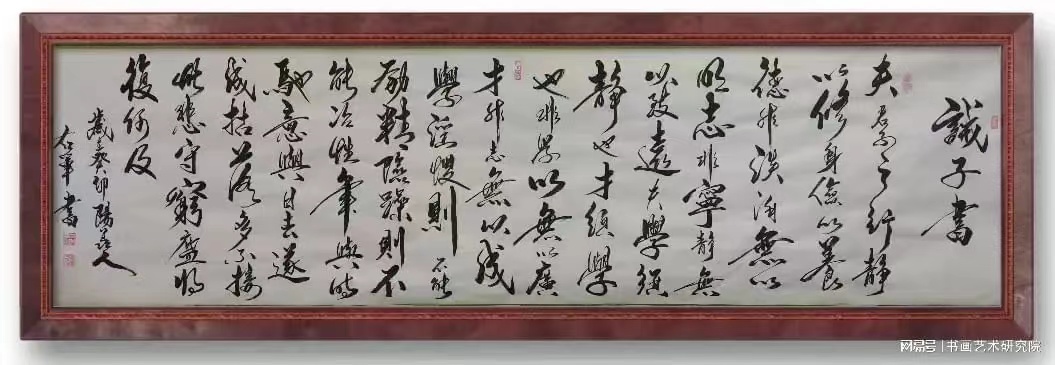 誡子書
夫君子之行靜
以修身儉以養
德非淡泊無以
明志非寧靜無
以致遠夫學須
靜也才須學
也非學以無以廣
才非志無以成
學淫慢則不能
勵精險躁則不
能冶性年與時
馳意與日去遂
成枯落多不接
世悲守窮廬將
復何及
歲在癸卯陽
左軍書
网易号 | 书画艺术研究院